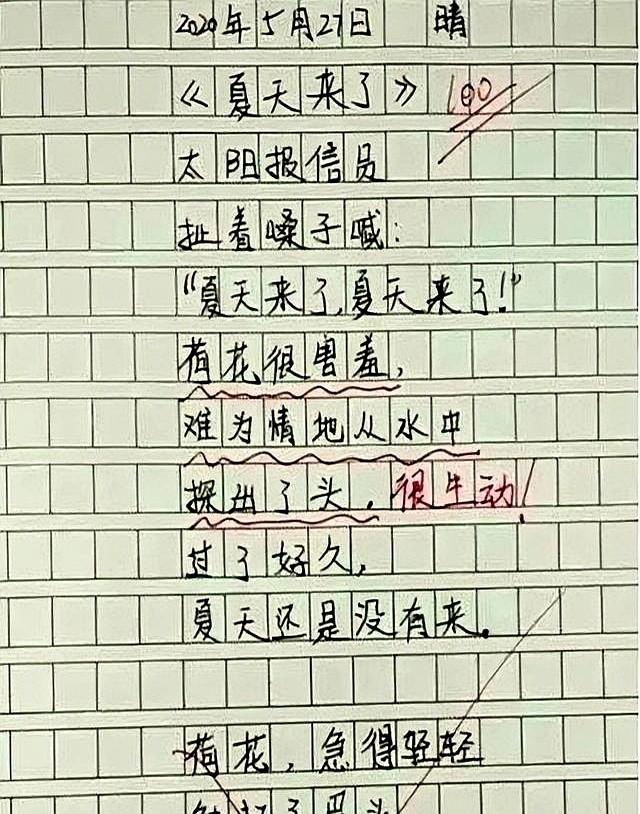 2020年5月27日 晴
《夏天来了》 100
太阳报信员
扯着嗓子喊:
“夏天来了,夏天来了!”
荷花很害羞,
难为情地从水中
探出了头。很生动!
过了好久,
夏天还是没有来。
荷花,急得轻轻